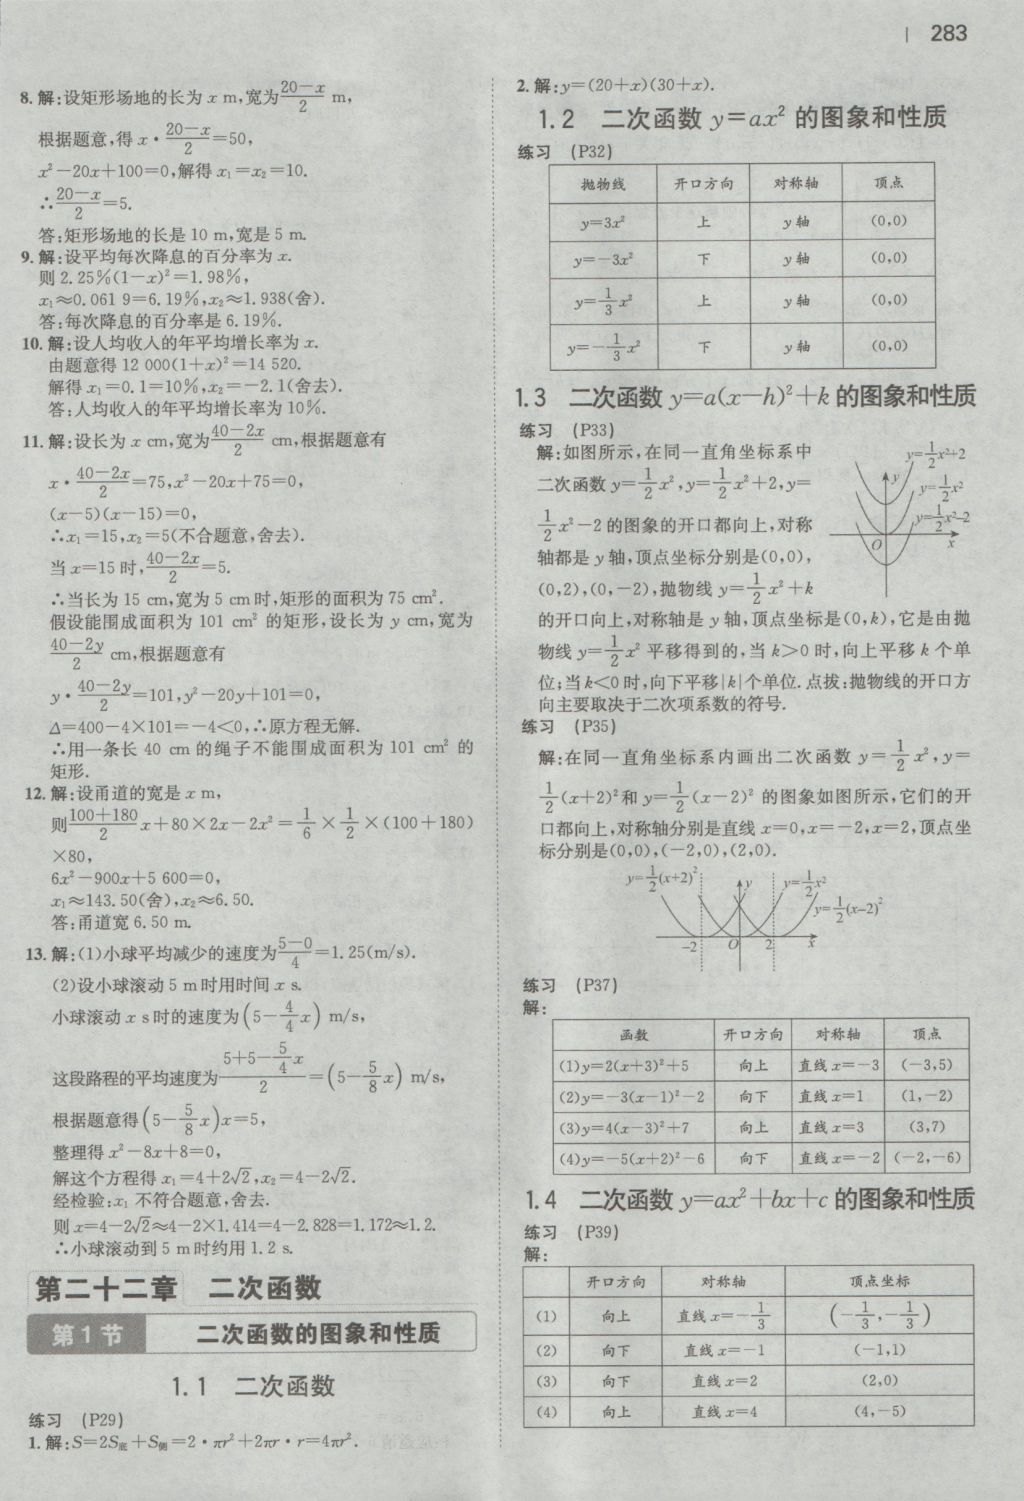 283
8.解:设矩形场地的长为 x m,宽为(20-x)/2 m,
根据题意,得 x·(20-x)/2=50,
x²-20x+100=0,解得 x₁=x₂=10.
∴(20-x)/2=5.
答:矩形场地的长是 10 m,宽是 5 m.
9.解:设平均每次降息的百分率为 x.
则 2.25%(1-x)²=1.98%,
x₁≈0.061 9=6.19%,x₂≈1.938(舍).
答:每次降息的百分率是 6.19%.
10.解:设人均收入的年平均增长率为 x.
由题意得 12 000(1+x)²=14 520.
解得 x₁=0.1=10%,x₂=-2.1(舍去).
答:人均收入的年平均增长率为 10%.
11.解:设长为 x cm,宽为(40-2x)/2 cm,根据题意有
x·(40-2x)/2=75,x²-20x+75=0,
(x-5)(x-15)=0,
∴x₁=15,x₂=5(不合题意,舍去).
当 x=15 时,(40-2x)/2=5.
∴当长为 15 cm,宽为 5 cm 时,矩形的面积为 75 cm².
假设能围成面积为 101 cm² 的矩形,设长为 y cm,宽为
(40-2y)/2 cm,根据题意有
y·(40-2y)/2=101,y²-20y+101=0,
Δ=400-4×101=-4<0,∴原方程无解.
∴用一条长 40 cm 的绳子不能围成面积为 101 cm² 的
矩形.
12.解:设甬道的宽是 x m,
则(100+180)/2 x+80×2x-2x²=1/6×1/2×(100+180)
×80,
6x²-900x+5 600=0,
x₁≈143.50(舍),x₂≈6.50.
答:甬道宽 6.50 m.
13.解:(1)小球平均减少的速度为(5-0)/4=1.25(m/s).
(2)设小球滚动 5 m 时用时间 x s.
小球滚动 x s 时的速度为(5-4/4 x) m/s,
这段路程的平均速度为(5+5-5/4 x)/2=(5-5/8 x) m/s,
根据题意得(5-5/8 x)x=5,
整理得 x²-8x+8=0,
解这个方程得 x₁=4+2√2,x₂=4-2√2.
经检验:x₁ 不符合题意,舍去.
则 x=4-2√2≈4-2×1.414=4-2.828=1.172≈1.2.
∴小球滚动到 5 m 时约用 1.2 s.
第二十二章 二次函数
第1节 二次函数的图象和性质
1.1 二次函数
练习 (P29)
1.解:S=2S底+S侧=2·πr²+2πr·r=4πr².
2.解:y=(20+x)(30+x).
1.2 二次函数 y=ax² 的图象和性质
练习 (P32)
抛物线 开口方向 对称轴 顶点
y=3x² 上 y 轴 (0,0)
y=-3x² 下 y 轴 (0,0)
y=1/3 x² 上 y 轴 (0,0)
y=-1/3 x² 下 y 轴 (0,0)
1.3 二次函数 y=a(x-h)²+k 的图象和性质
练习 (P33)
解:如图所示,在同一直角坐标系中
二次函数 y=1/2 x²,y=1/2 x²+2,y=
1/2 x²-2 的图象的开口都向上,对称
轴都是 y 轴,顶点坐标分别是(0,0),
(0,2),(0,-2),抛物线 y=1/2 x²+k
y=1/2 x²+2
y
y=1/2 x²
y=1/2 x²-2
O
x
的开口向上,对称轴是 y 轴,顶点坐标是(0,k),它是由抛
物线 y=1/2 x² 平移得到的,当 k>0 时,向上平移 k 个单
位;当 k<0 时,向下平移|k|个单位.点拨:抛物线的开口方
向主要取决于二次项系数的符号.
练习 (P35)
解:在同一直角坐标系内画出二次函数 y=1/2 x²,y=
1/2(x+2)²和 y=1/2(x-2)² 的图象如图所示,它们的开
口都向上,对称轴分别是直线 x=0,x=-2,x=2,顶点坐
标分别是(0,0),(-2,0),(2,0).
y=1/2(x+2)²
y
y=1/2 x²
y=1/2(x-2)²
-2 O 2 x
练习 (P37)
解:
函数 开口方向 对称轴 顶点
(1)y=2(x+3)²+5 向上 直线 x=-3 (-3,5)
(2)y=-3(x-1)²-2 向下 直线 x=1 (1,-2)
(3)y=4(x-3)²+7 向上 直线 x=3 (3,7)
(4)y=-5(x+2)²-6 向下 直线 x=-2 (-2,-6)
1.4 二次函数 y=ax²+bx+c 的图象和性质
练习 (P39)
解:
开口方向 对称轴 顶点坐标
(1) 向上 直线 x=-1/3 (-1/3,-1/3)
(2) 向下 直线 x=-1 (-1,1)
(3) 向下 直线 x=2 (2,0)
(4) 向上 直线 x=4 (4,-5)